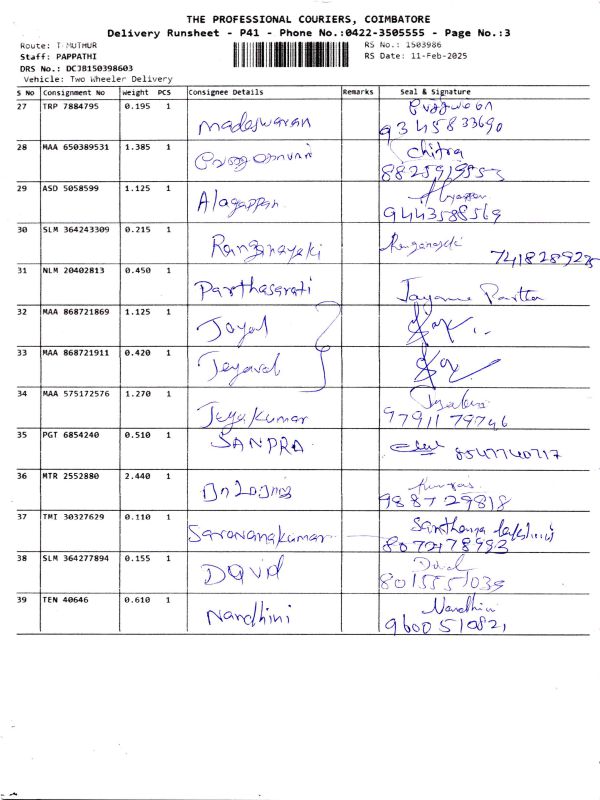 THE PROFESSIONAL COURIERS, COIMBATORE
Delivery Runsheet - P41 - Phone No.:0422-3505555 - Page No.:3
Route: T MUTHUR
RS No.: 1503986
Staff: PAPPATHI
RS Date: 11-Feb-2025
DRS No.: DCJB150398603
Vehicle: Two Wheeler Delivery
S No Consignment No Weight PCS Consignee Details Remarks Seal & Signature
27 TRP 7884795 0.195 1 Madeswaran
9345833690
28 MAA 650389531 1.385 1 Chitra
29 ASD 5058599 1.125 1 Alagappan
9443588569
30 SLM 364243309 0.215 1 Ranganayaki Ranganayaki
31 NLM 20402813 0.450 1 Parthasarati
32 MAA 868721869 1.125 1
33 MAA 868721911 0.420 1
34 MAA 575172576 1.270 1 JeyaKumar
9791179746
35 PGT 6854240 0.510 1 SANPRA
8547740717
36 MTR 2552880 2.440 1
9887729818
37 TMI 30327629 0.110 1 Saravanakumar
38 SLM 364277894 0.155 1 David David
8015551039
39 TEN 40646 0.610 1 Nandhini Nandhini
9600510821